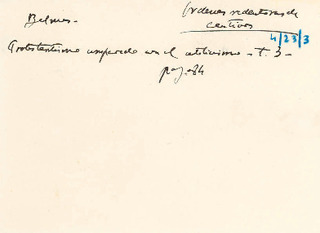 Balmes -
Ordenes redentoras de
cautivos
4/23/3
Protestantismo comparado con el catolicismo - t. 3 -
pag. 84